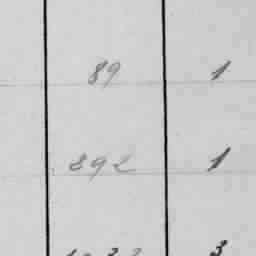 89 1
892 1
3